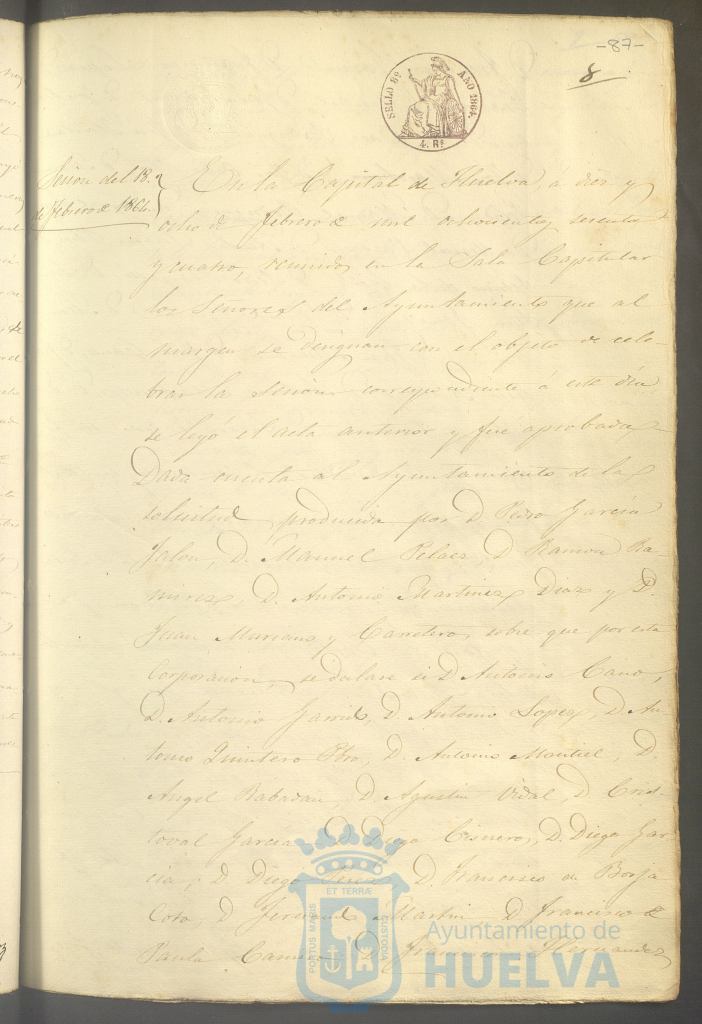 -87-
8
SELLO 8º AÑO 1864.
4. Rs
Sesion del 18.
de febrero de 1864.
En la Capital de Huelva, a diez y
ocho de febrero de mil ochocientos sesenta
y cuatro, reunidos en la Sala Capitular
los Señores del Ayuntamiento que al
margen se designan con el objeto de cele-
brar la sesion correspondiente á este dia
se leyó el acta anterior y fué aprobada
Dada cuenta al Ayuntamiento de la
solicitud producida por D Pedro Garcia
Jalon, D. Manuel Pelaez, D Ramon Ra-
mirez, D. Antonio Martinez Diaz y D.
Juan Muriano y Carretero, sobre que por esta
Corporacion, se declare si D Antonio Cano,
D. Antonio Garrid, D Antonio Lopez, D An-
tonio Quintero Pbro, D. Antonio Montiel, D.
Angel Rabadan, D Agustin Vidal, D Cris-
toval Garcia, D Diego Cisneros, D. Diego Gar-
cia, D Diego D. Francisco de Borja
Coto, D Fernand Martin D. Francisco de
Paula D. Francisco Hernandez
PORTUS MARIS ET TERRÆ CUSTODIA
Ayuntamiento de
HUELVA